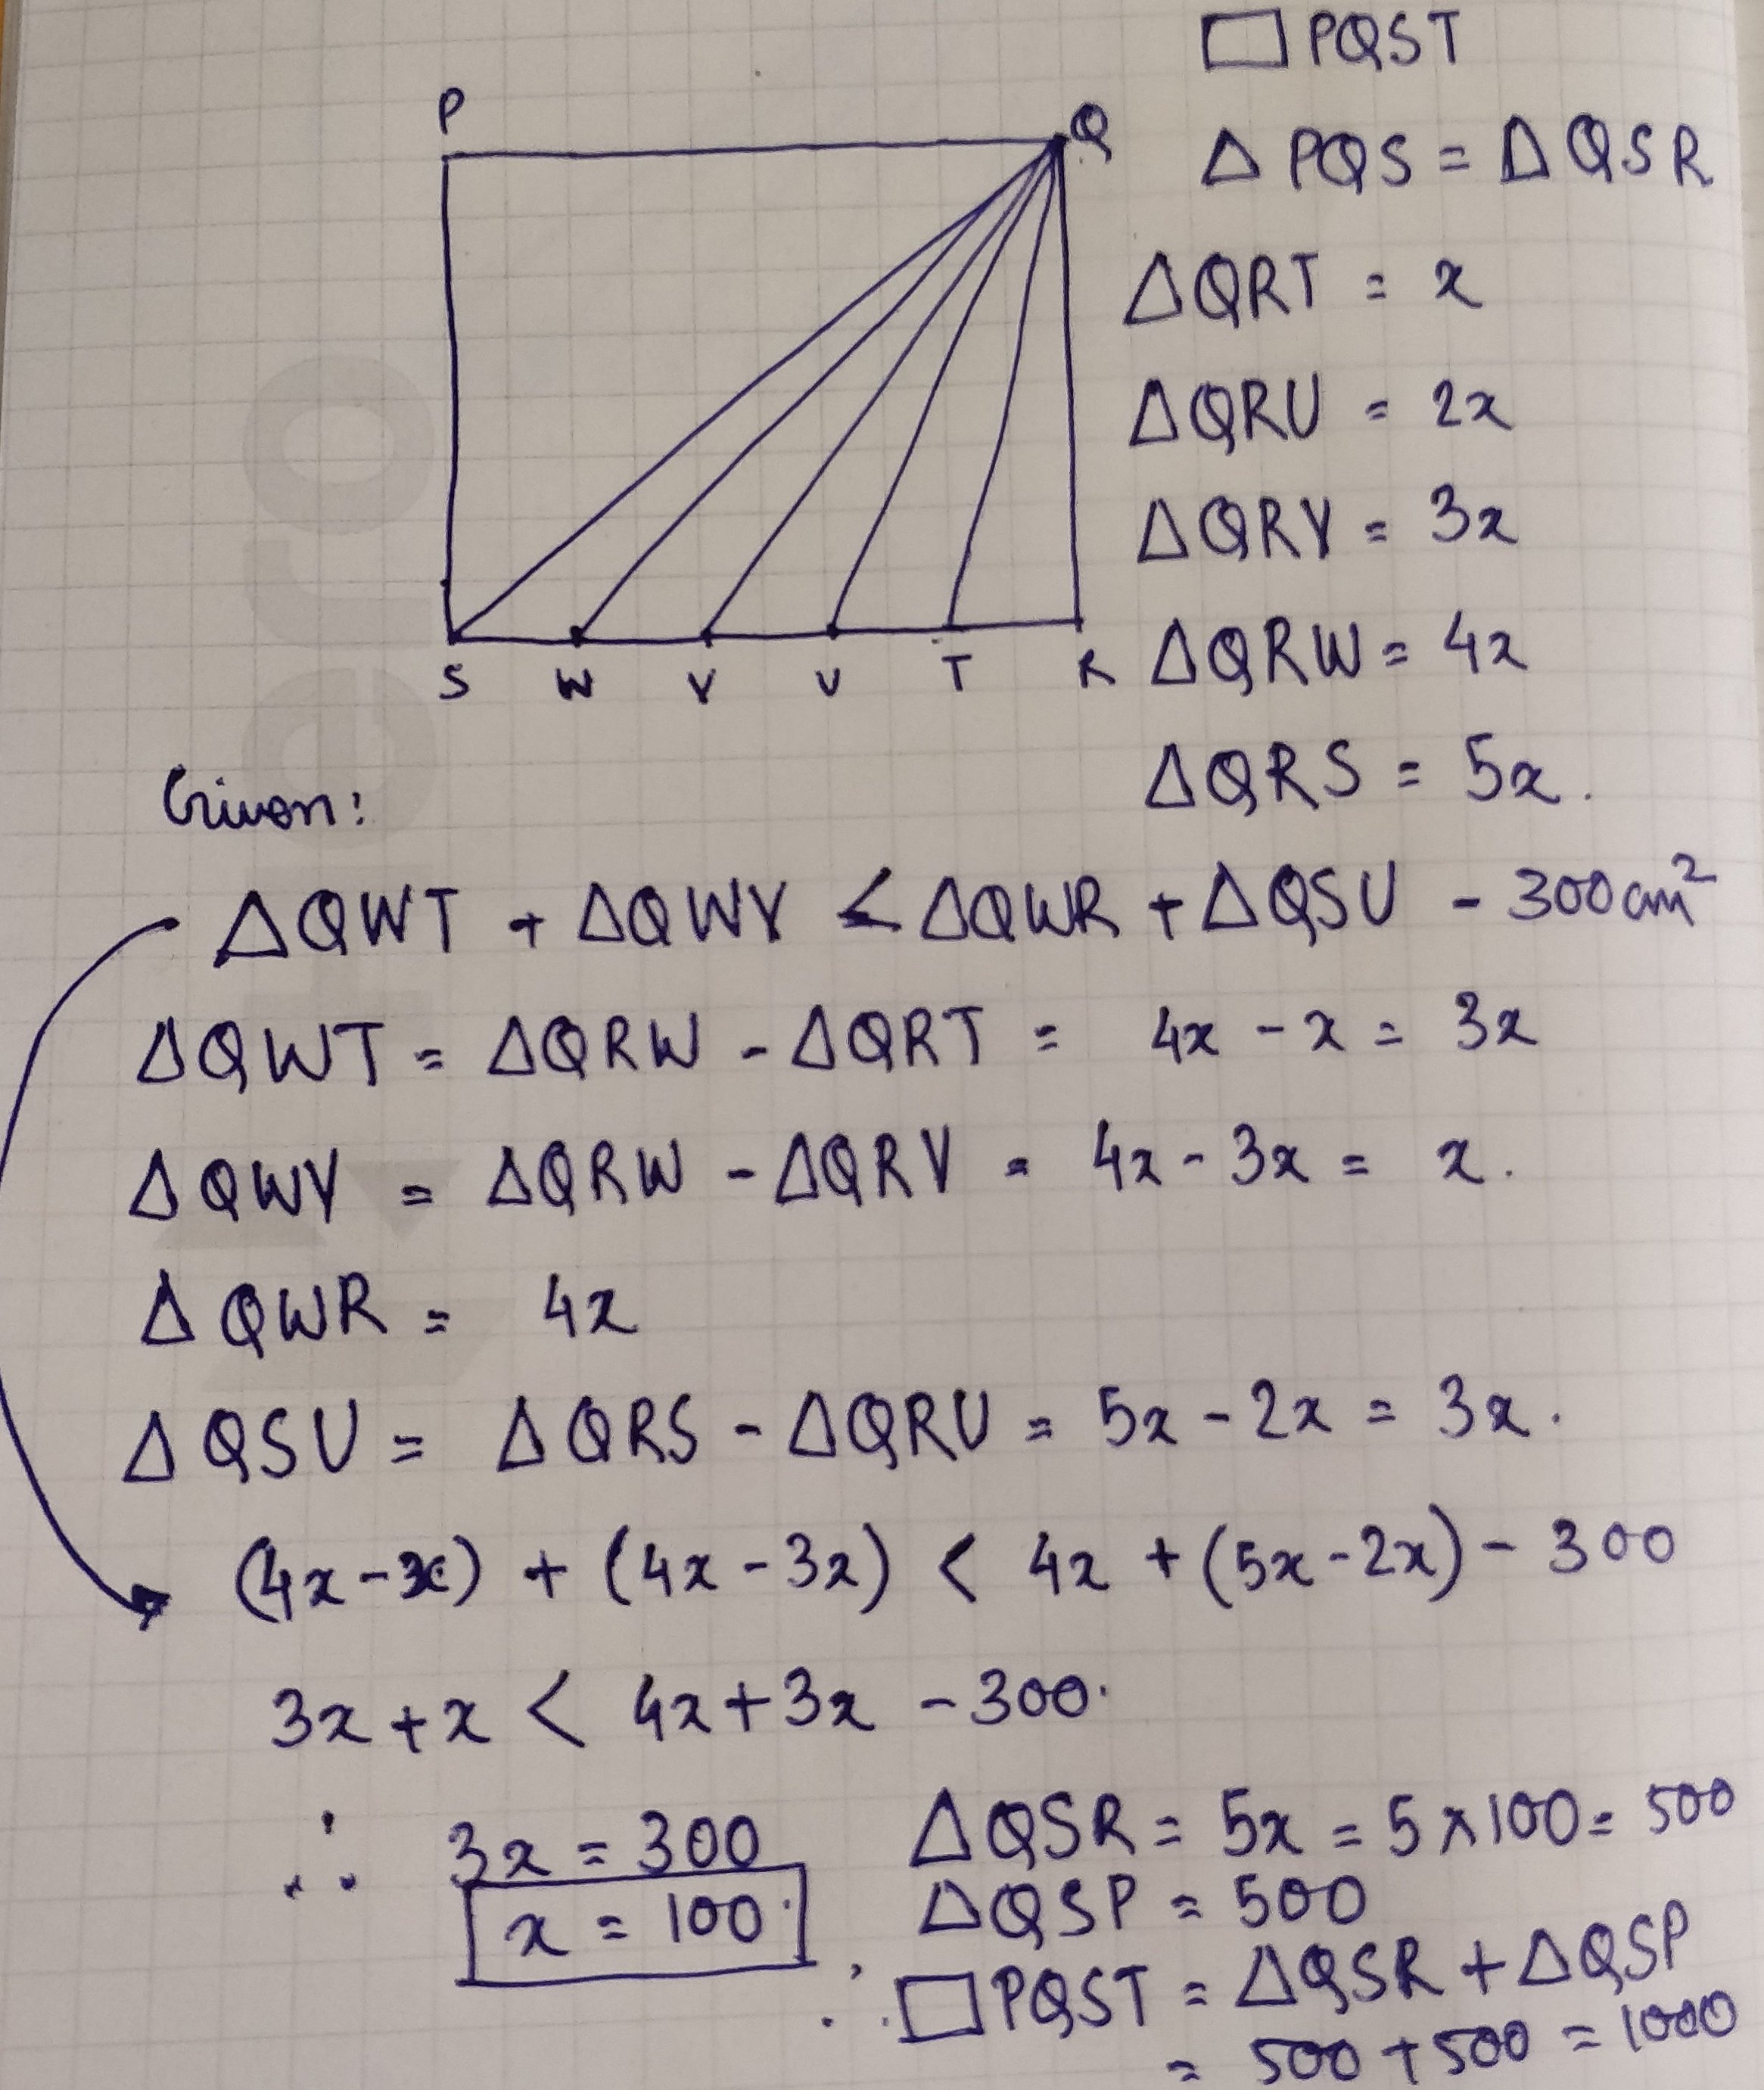 □ PQST
P
Q
Δ PQS = Δ QSR
ΔQRT = x
ΔQRU = 2x
ΔQRV = 3x
S W V U T R
ΔQRW = 4x
ΔQRS = 5x.
Given:
ΔQWT + ΔQWV < ΔQWR + ΔQSU - 300 cm²
ΔQWT = ΔQRW - ΔQRT = 4x - x = 3x
ΔQWV = ΔQRW - ΔQRV = 4x - 3x = x.
ΔQWR = 4x
ΔQSU = ΔQRS - ΔQRU = 5x - 2x = 3x.
(4x - x) + (4x - 3x) < 4x + (5x - 2x) - 300
3x + x < 4x + 3x - 300.
∴ 3x = 300
x = 100.
ΔQSR = 5x = 5 × 100 = 500
ΔQSP = 500
∴ □ PQST = ΔQSR + ΔQSP
= 500 + 500 = 1000